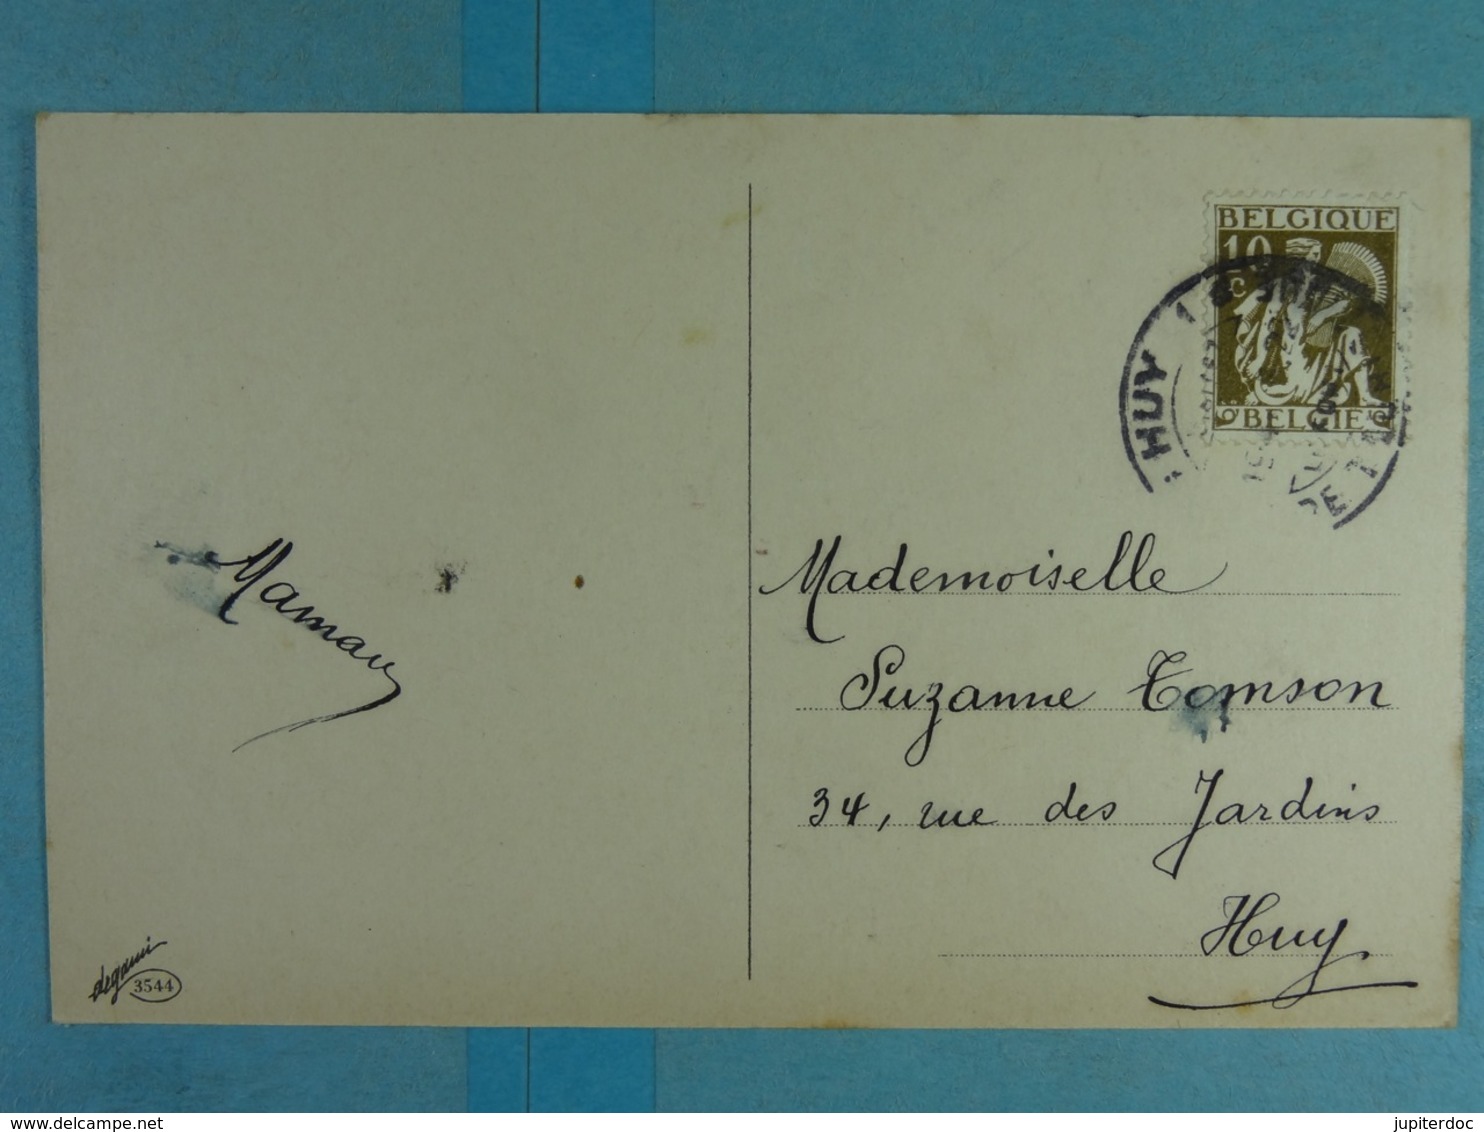 BELGIQUE
10
c
BELGIË
HUY 1
HUY
Maman
Mademoiselle
Suzanne Tomson
34, rue des Jardins
Huy
degami
3544
delcampe.net
jupiterdoc